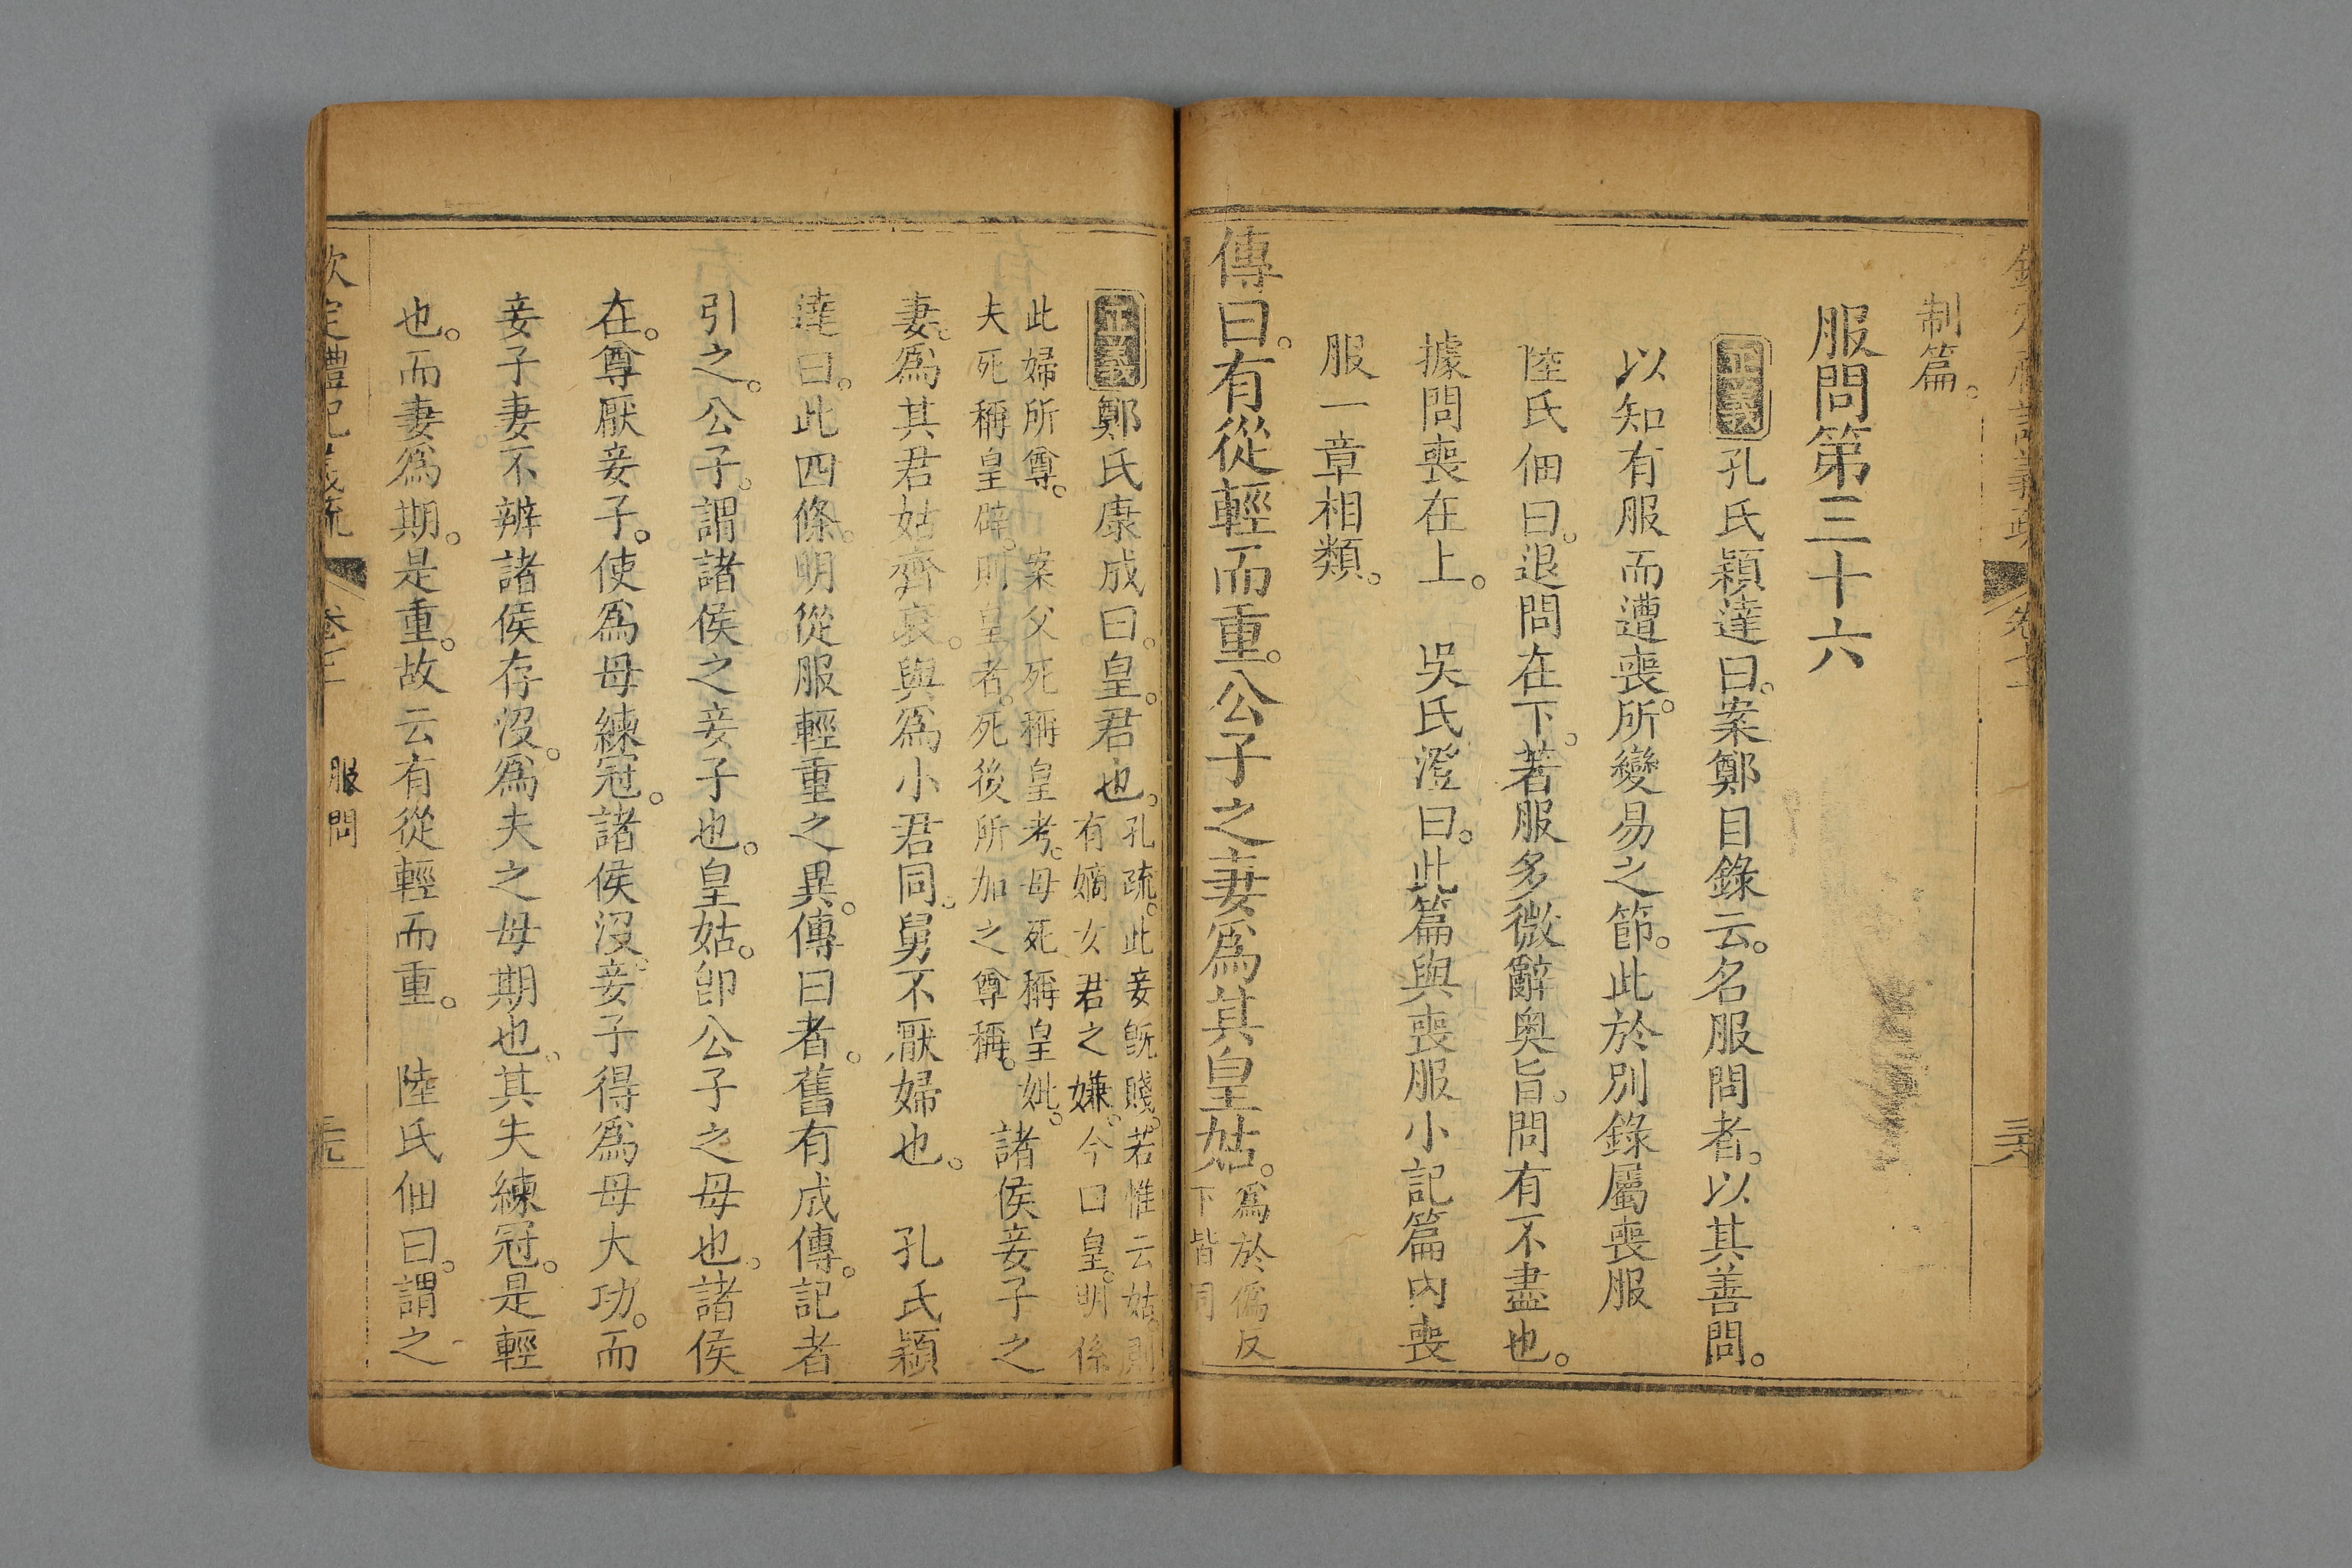 制篇。
服問第三十六
正義孔氏穎達曰。案鄭目錄云。名服問者。以其善問。
以知有服而遭喪所。變易之節。此於別錄屬喪服
陸氏佃曰。退問在下。若服多微辭奧旨。問有不盡也。
據問喪在上。　吳氏澄曰。此篇與喪服小記篇內喪
服一章相類。
傳曰。有從輕而重。公子之妻爲其皇姑。爲於僞反
下皆同
正義鄭氏康成曰。皇。君也。孔疏。此妾旣賤。若惟云姑。則
有嫡女君之嫌。今曰皇。明係
此婦所尊。　案父死稱皇考。母死稱皇妣。
夫死稱皇辟。則皇者。死後所加之尊稱。
諸侯妾子之
妻。爲其君姑齊衰。與爲小君同。舅不厭婦也。　孔氏穎
達曰。此四條。明從服輕重之異。傳曰者。舊有成傳。記者
引之。公子。謂諸侯之妾子也。皇姑。卽公子之母也。諸侯
在。尊厭妾子。使爲母練冠。諸侯沒。妾子得爲母大功。而
妾子妻不辨諸侯存沒。爲夫之母期也。其夫練冠。是輕
也。而妻爲期。是重。故云有從輕而重。　陸氏佃曰。謂之
欽定禮記義疏
服問